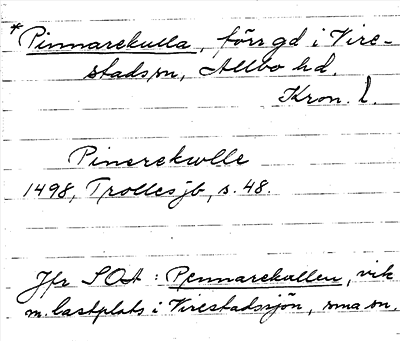 * Pinnarekulla, förr gd i Vire-
stads sn, Allbo hd.
Kron. l.
Pinerekulle
1498, Trollesjb, s. 48.
Jfr SOA: Pennarekullen, vik
m. lastplats i Virestadssjön, sma sn.